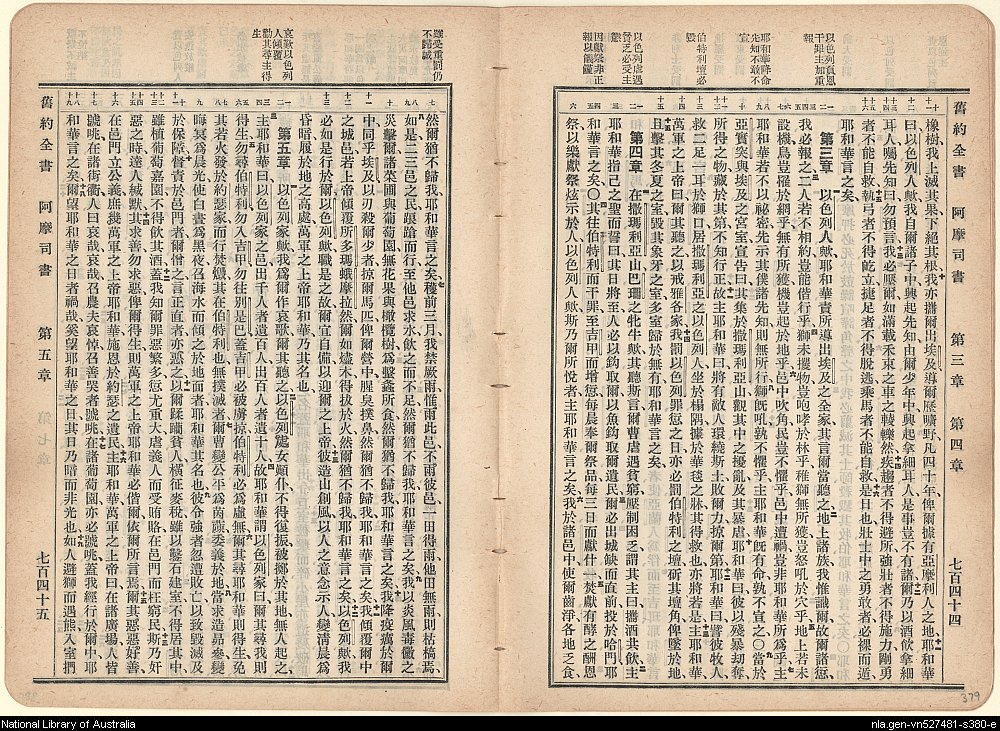 舊約全書 阿摩司書 第三章 第四章 七百四十四
以色列負恩
干罪主加重
報
耶和華將命
先知不敢不
宣
伯特利壇必
毀
以色列虐遇
貧乏必受主
懲
因獻祭非正
報以饑饉
橡樹我上滅其果下絕其根我亦攜爾出埃及導爾歷曠野凡四十年俾爾據有亞摩利人之地耶和華
曰以色列人歟我自爾諸子中興起先知由爾少年中興起拿細耳人是事豈不有諸爾乃以酒飲拿細
耳人囑先知曰勿預言我必壓爾如滿載禾束之車之輾轢然疾趨者不得避所強壯者不得施力剛勇
者不能自救執弓者不得屹立捷足者不得脫逃乘馬者不能自救是日也壯士中之勇敢者必裸而遁
耶和華言之矣
第三章 以色列人歟耶和華責所導出埃及之全家其言爾當聽之地上諸族我惟識爾故爾諸愆
我必報之二人若不相約豈能偕行乎獅未攫物豈咆哮於林乎稚獅無所獲豈怒吼於穴乎地上若未
設機鳥豈罹於網乎無有所獲機豈起於地乎邑中吹角民豈不懼乎邑中遭禍豈非耶和華所為乎主
耶和華若不以祕密先示其僕諸先知則無所行獅既吼孰不懼乎主耶和華既有命孰不宣之〇當於
亞實突與埃及之宮室宣告曰其集於撒瑪利亞山觀其中之擾亂及其暴虐耶和華曰彼以殘暴劫奪
所得之物藏於其第不知行正故主耶和華曰將有敵人環繞斯土敗爾力掠爾第耶和華曰譬彼牧人
救二足一耳於獅口居撒瑪利亞之以色列人坐於榻隅據於華毯之牀其得救也亦將若是主耶和華
萬軍之上帝曰爾其聽之以戒雅各家我罰以色列罪愆之日亦必罰伯特利之壇斫其壇角俾墜於地
且擊其冬夏之室毀其象牙之室多室歸於無有耶和華言之矣
第四章 在撒瑪利亞山巴珊之牝牛歟其聽斯言爾曹虐遇貧窮壓制困乏謂其主曰攜酒共飲主
耶和華指己之聖而誓曰其日將至人必以鉤取爾以魚鉤取爾遺民爾必出城缺而直前投於哈門耶
和華言之矣〇其往伯特利而干罪至吉甲而增愆每晨奉爾祭品每三日而獻什一焚獻有酵之酬恩
祭以樂獻祭炫示於人以色列人歟斯乃爾所悅者主耶和華言之矣我於諸邑中使爾齒淨各地乏食
379
雖受重罰仍
不歸誠
哀歎以色列
人傾覆
勸其尋主得
生
然爾猶不歸我耶和華言之矣穫前三月我禁厥雨惟雨此邑不雨彼邑一田得雨他田無雨則枯槁焉
如是二三邑之民踉蹌而行至他邑求水飲之而不足然爾猶不歸我耶和華言之矣我以炎風毒黴之
災擊爾諸菜圃與葡萄園無花果與橄欖樹為𧒂蟊所食然爾猶不歸我耶和華言之矣我降疫癘於爾
中同乎埃及以刃殺爾少者掠爾馬匹俾爾營中腥臭撲鼻然爾猶不歸我耶和華言之矣我傾覆爾中
之城邑若上帝傾覆所多瑪蛾摩拉然爾如燼木得拔於火然爾猶不歸我耶和華言之矣以色列歟我
必如是行於爾以色列歟職是之故爾宜自備以迎爾之上帝彼造山創風以人之意念示人變淸晨為
昏暗履於地之高處萬軍之上帝耶和華乃其名也
第五章 以色列家歟我為爾作哀歌爾其聽之以色列處女顚仆不得復振被擲於其地無人起之
主耶和華曰以色列家之邑出千人者遺百人出百人者遺十人故耶和華謂以色列家曰爾其尋我則
得生勿尋伯特利勿入吉甲勿往別是巴蓋吉甲必被虜掠伯特利必為虛無爾其尋耶和華則得生免
其若火發於約瑟家而行焚燬其在伯特利也無人撲滅者爾曹變公平為茵蔯委義於地當求造昴參變
晦冥為晨光使白晝為黑夜召海水而傾之於地面者耶和華其名也彼令強者忽遭敗亡以致毀滅及
於保障督責於邑門者爾憎之言正直者亦惡之以爾蹂躪貧人橫征麥稅雖以鑿石建室不得居其中
雖植葡萄嘉園不得飲其酒蓋我知爾罪惡繁多愆尤重大虐義人而受賄賂在邑門而枉窮民斯乃奸
惡之時達人緘默其求善勿求惡俾爾得生則萬軍之上帝耶和華必偕爾依爾所言焉爾其惡惡好善
在邑門立公義庶幾萬軍之上帝耶和華施恩於約瑟之遺民主耶和華萬軍之上帝曰在諸廣場人皆
號咷在諸街衢人曰哀哉哀哉召農夫哀悼召善哭者號咷在諸葡萄園亦必號咷蓋我經行於爾中耶
和華言之矣爾望耶和華之日者禍哉奚望耶和華之日其日乃暗而非光也如人避獅而遇熊入室捫
舊約全書 阿摩司書 第五章 七百四十五
National Library of Australia
nla.gen-vn527481-s380-e